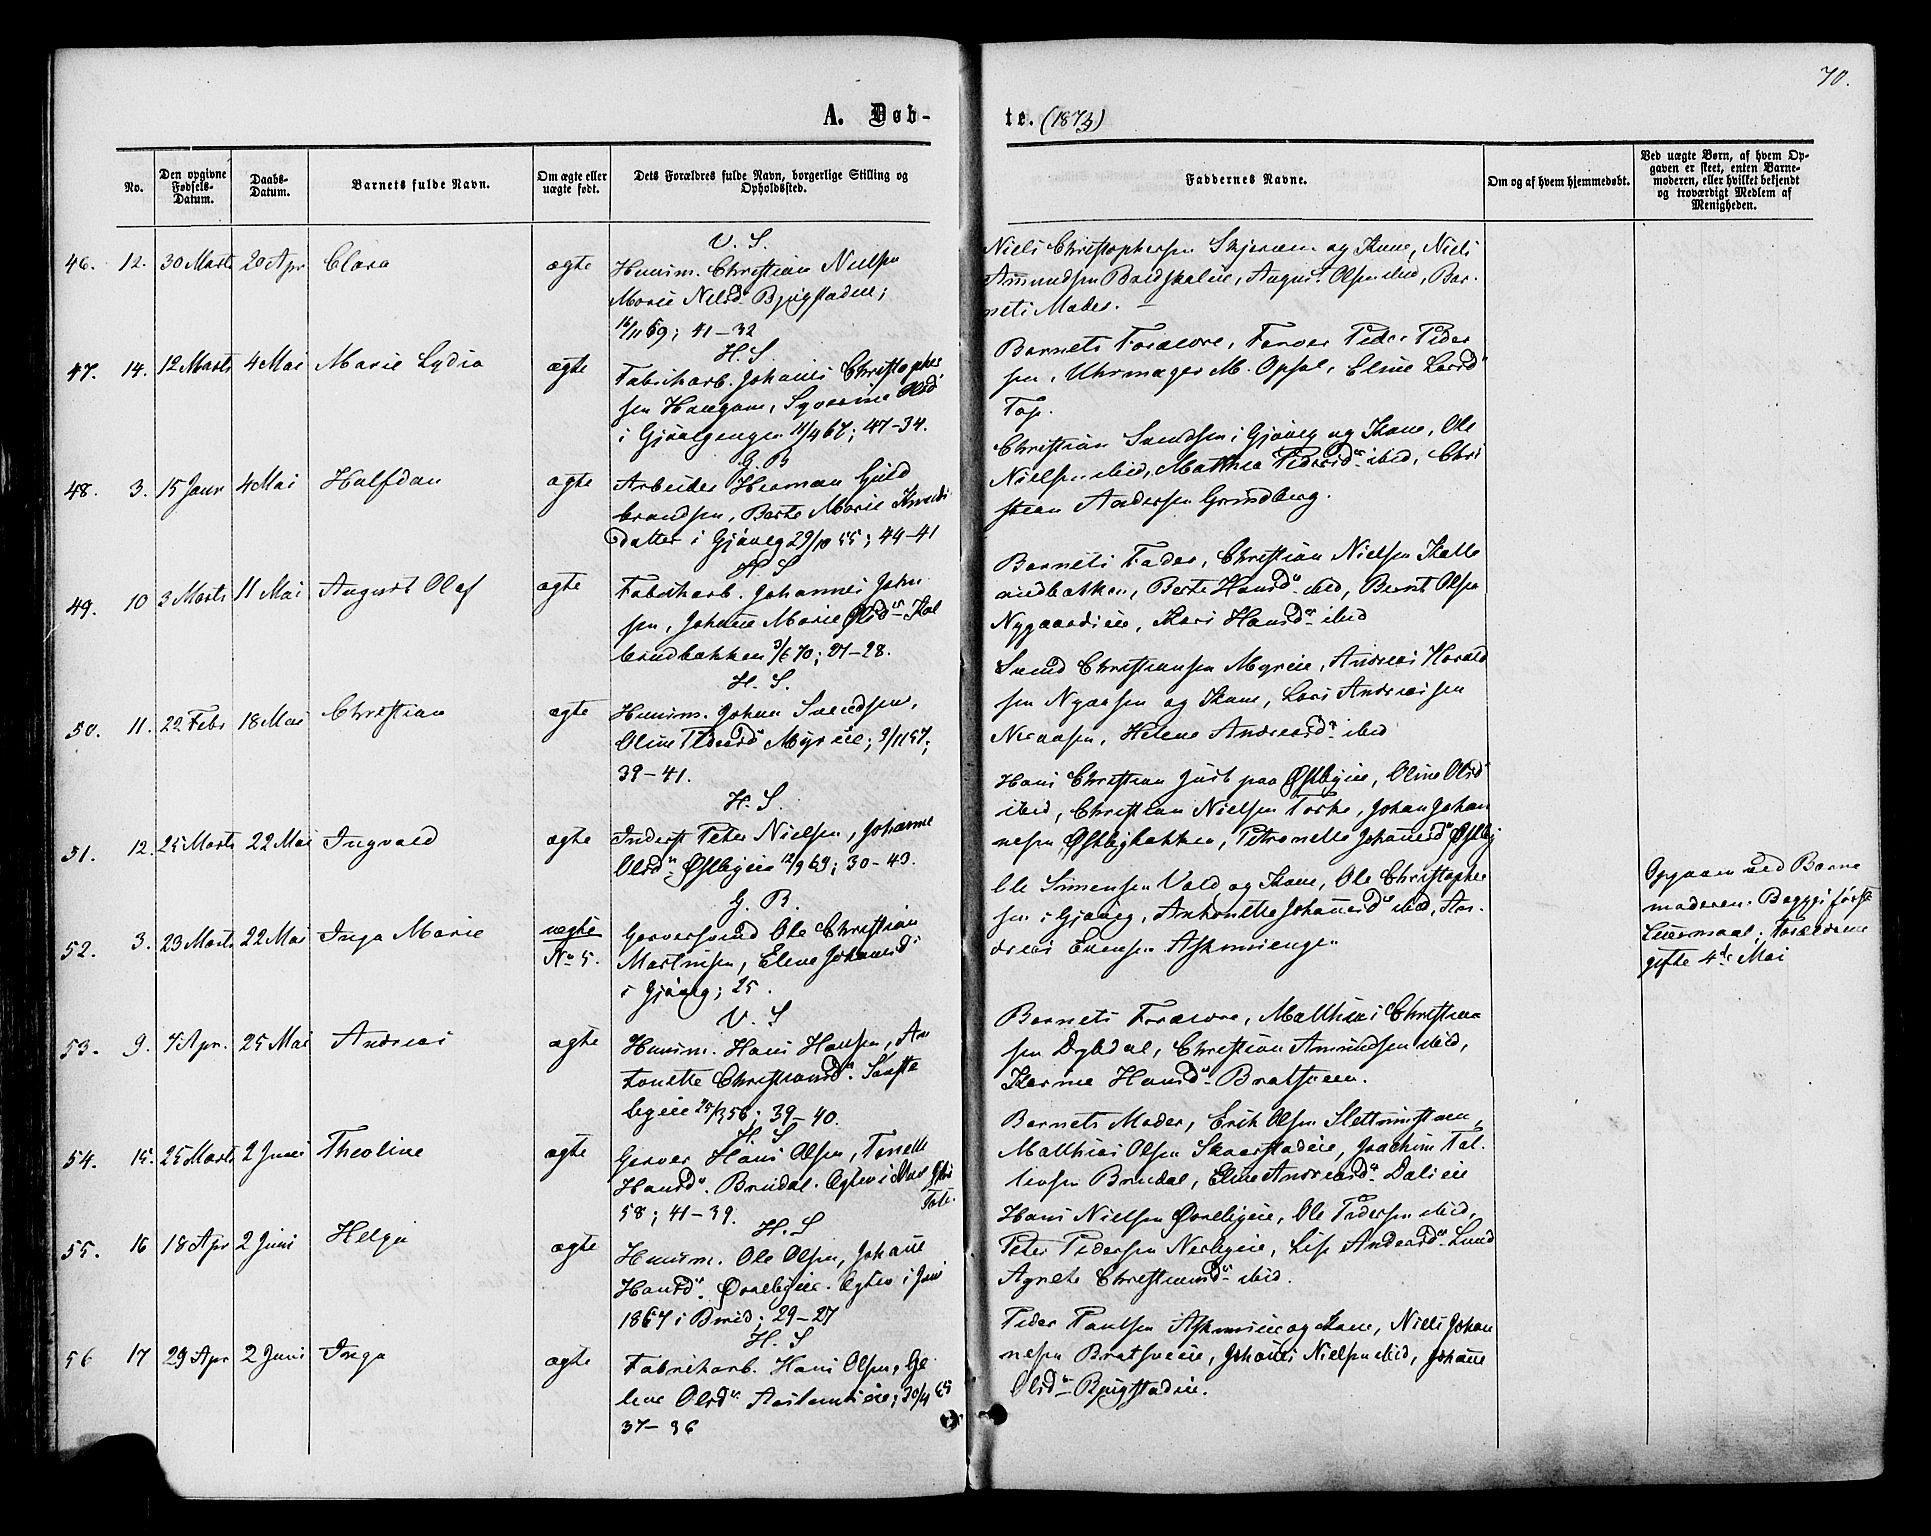 70.
A. Døb-
te. (1873)
No.
Den opgivne Fødsels-Datum.
Daabs-Datum.
Barnets fulde Navn.
Om ægte eller uægte født.
Dets Forældres fulde Navn, borgerlige Stilling og Opholdssted.
Faddernes Navne.
Om og af hvem hjemmedøbt.
Ved uægte Børn, af hvem Opgaven er skeet, enten Barnemoderen, eller hvilket bekjendt og troværdigt Medlem af Menigheden.
V. S.
46. 12. 30 Marts 20 Apr Clara ægte
Huusm. Christian Nielsen
Marie Nilsd. Bjugstadeie;
16/11 69; 41-32
Niels Christophersen Skjeræm og Kone, Niels
Amundsen Braadskaleie, August Olsen ibid, Bar-
nets Moder.
H. S.
47. 14. 12 Marts 4 Mai Marie Lydia ægte
Fabrikarb. Johanes Christopher
sen Haugom, Syverine Olsd
i Gjøvigengen 11/4 67; 47-34.
Barnets Forældre, Farver Peder Peder
sen, Uhrmager M. Opsal, Eline Larsd
Top.
G. B
48. 3. 15 Janr 4 Mai Halfdan ægte
Arbeider Herman Guld
brandsen, Berte Marie Knuds
datter i Gjøvig 29/10 55; 44-41
Christian Svendsen i Gjøvig og Kone, Ole
Nielsen ibid, Mathea Pedersd. ibid, Chri
stian Andersen Grindberg.
H. S
49. 10 3 Marts 11 Mai August Olaf ægte
Fabrikarb. Johannes Jørn
sen, Johane Marie Olsd. Kal
brudbakken 3/6 70; 27-28.
Barnets Fader, Christian Nielsen Kalle
rudbakken, Berte Hansd. ibid, Bernt Olsen
Nygaardseie, Kari Hansd. ibid
H. S.
50. 11. 22 Febr 18 Mai Christian ægte
Huusm. Johan Svendsen,
Oline Pedersd Myreie; 9/11 57;
39-41.
Svend Christiansen Myreie, Andreas Harald
sen Nyaasen og Kone, Lars Andreassen
Neraasen, Helene Andreasd. ibid
H. S.
51. 12. 25 Marts 22 Mai Ingvald ægte
Inderst Peter Nielsen, Johanne
Olsd. Østbyeie 12/9 69; 30-43.
Hans Christian Just paa Østbyeie, Oline Olsd
ibid, Christian Nielsen Torke, Johan Johan
nesen Østbybakken, Petronelle Johanesd Østby
G. B.
52. 3. 23 Marts 22 Mai Inga Marie uægte
No 5.
Garversvend Ole Christian
Martinsen, Elene Johanesd
i Gjøvig; 25.
Ole Simensen Vold og Kone, Ole Christopher
sen i Gjøvig, Anthonette Johanesd ibid, An-
dreas Evensen Askimienge
Opgaven ved Barne
moderen. Begges første
Leiermaal; Forældrene
gifte 4de Mai
V. S
53. 9. 7 Apr. 25 Mai Andreas ægte
Huusm. Hans Hansen, An
tonette Christiansd.
byeie 25/3 56; 39-40.
Barnets Forældre, Matthias Christian
sen Dybdal, Christian Amundsen ibid,
Karine Hansd. Bratsveen.
H. S
54. 15. 25 Marts 2 Juni Theoline ægte
Garver Hans Olsen, Tonette
Hansd. Brudal. Egtev i
58; 41-39.
Barnets Moder, Erik Olsen
Matthias Olsen Skarstadeie, Joachim Tol-
levsen Brudal, Eline Andreasd. Dalseie
H. S
55. 16 18 Apr 2 Juni Helga ægte
Huusm. Ole Olsen, Johane
Hansd. Øvrebyeie. Egtev i Juni
1867 i Birid; 29-27
Hans Nielsen Øvrebyeie, Ole Pedersen ibid,
Peter Pedersen Nerbyeie, Lise Andersd. Lund
Agnete Christiansd. ibid.
H. S
56 17 29 Apr 2 Juni Inga ægte
Fabrikarb. Hans Olsen, Ge
line Olsd. Aaslundseie; 30/4 65
37-36
Peder Paulsen Askimseie og Kone, Niels Johan
nesen Bratsveeie, Johanes Nielsen ibid, Johane
Olsd. Bjugstadeie.